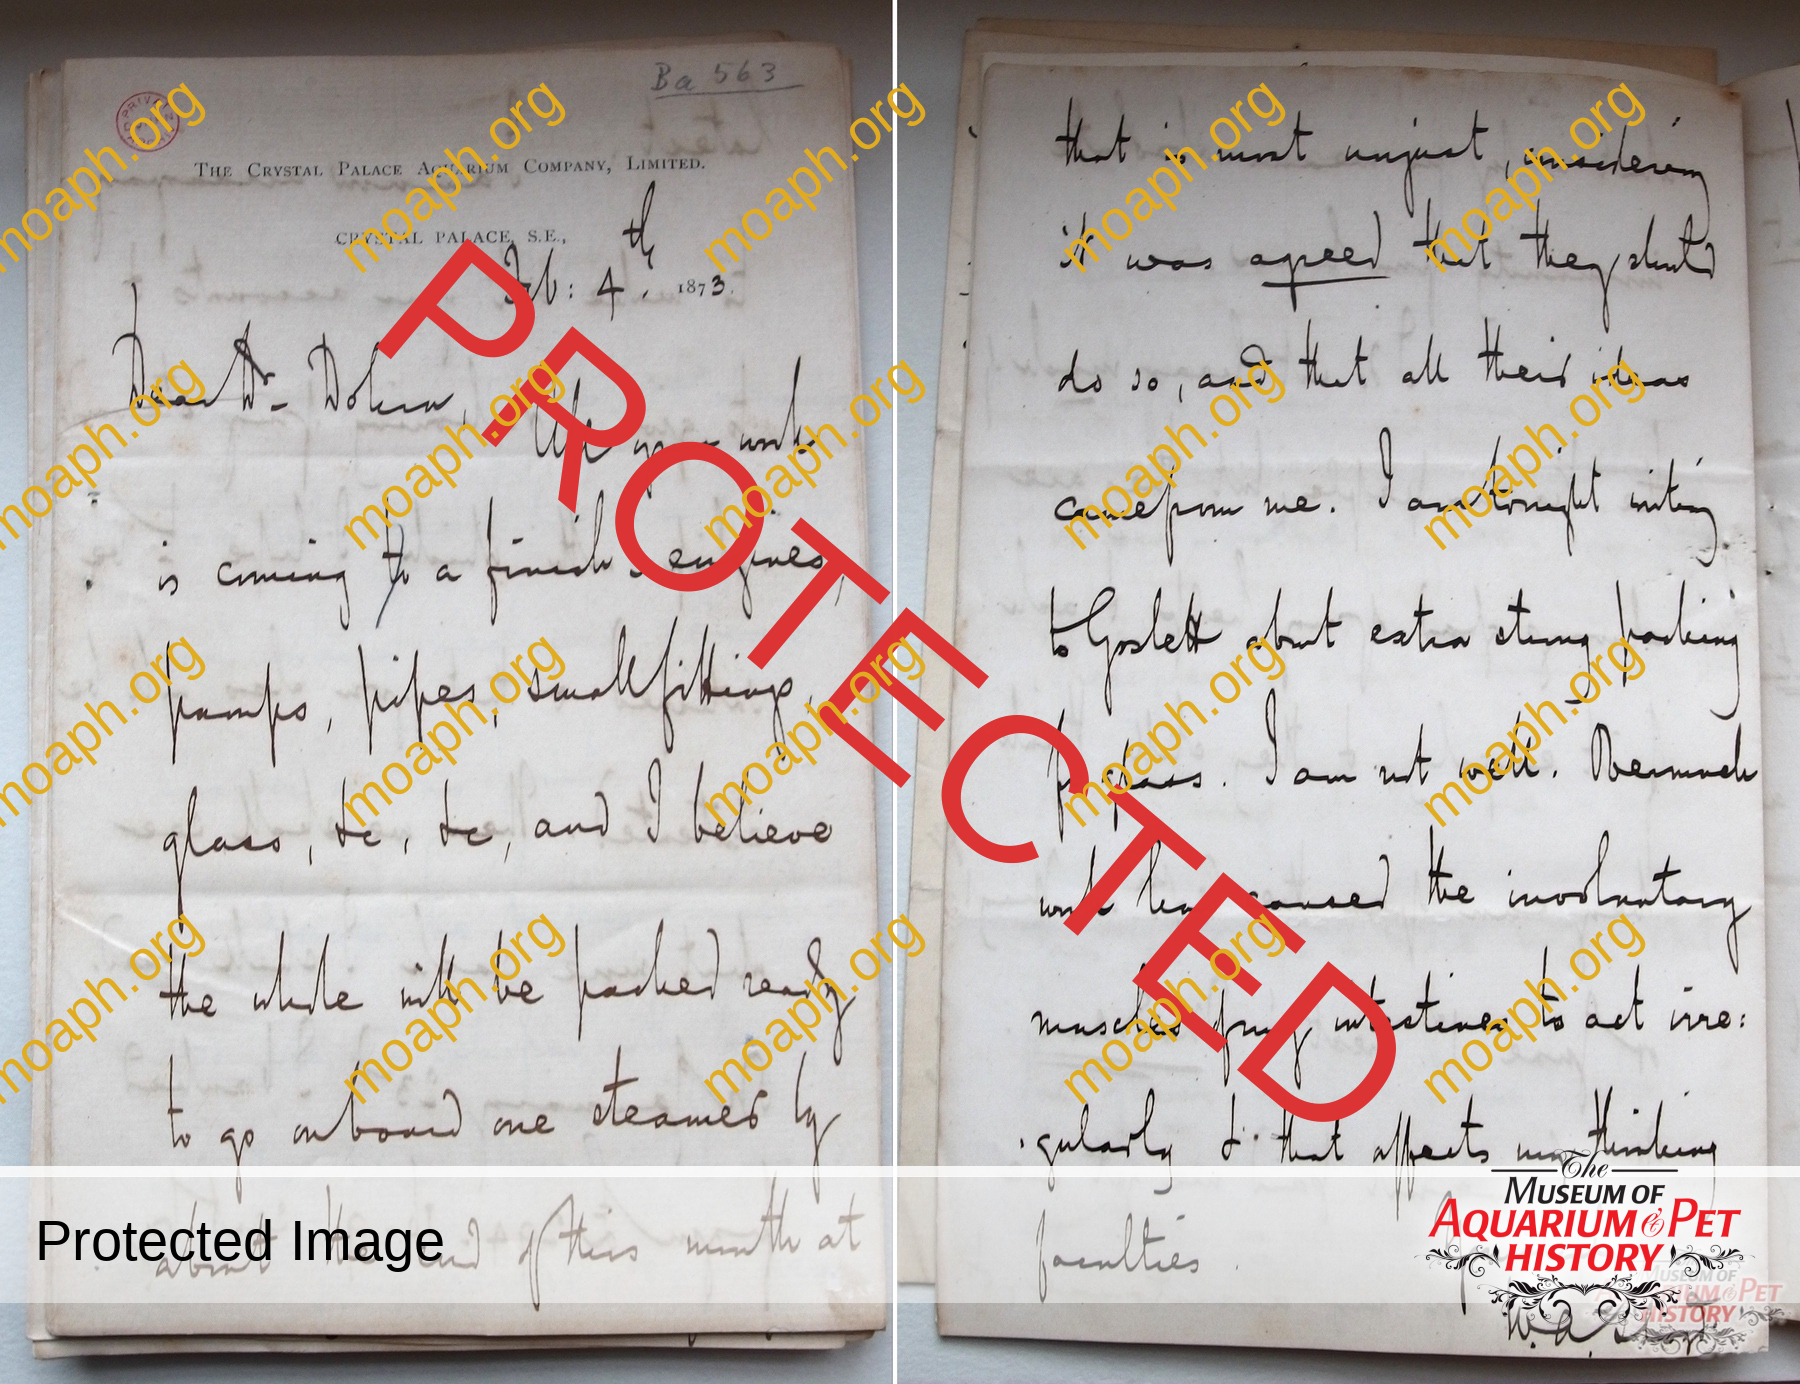 Ba 563
THE CRYSTAL PALACE AQUARIUM COMPANY, LIMITED.
CRYSTAL PALACE, S.E.,
Feb: 4th. 1873.
Dear Dr. Dohrn,
work
is coming to a finish, engines,
pumps, pipes, small fittings,
glass, &c, &c, and I believe
the whole will be packed ready
to go on board one steamer by
about the end of this month at
that is most unjust, considering
it was agreed that they should
do so, and that all their ideas
came from me. I am tonight writing
to Goslett about extra strong packing
for glass. I am not well. Overmuch
work has caused the involuntary
muscles of my intestines to act irre:
gularly & that affects my thinking
faculties.
W.A.
PROTECTED
moaph.org
Protected Image
The
MUSEUM OF
AQUARIUM & PET
HISTORY